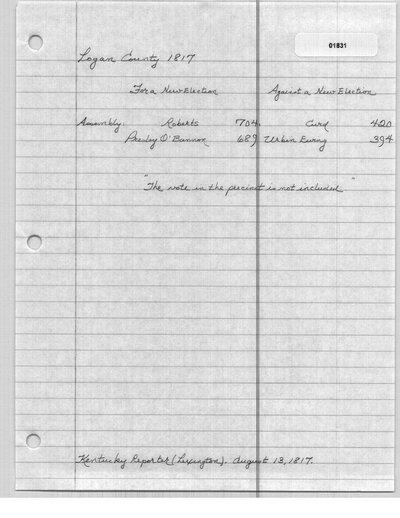 01831
Logan County 1817
For a New Election Against a New Election
Assembly: Roberts 704. Curd 420
Presley O'Bannon 689 Urban Ewing 394
"The vote in the precinct is not included"
Kentucky Reporter (Lexington). August 13, 1817.